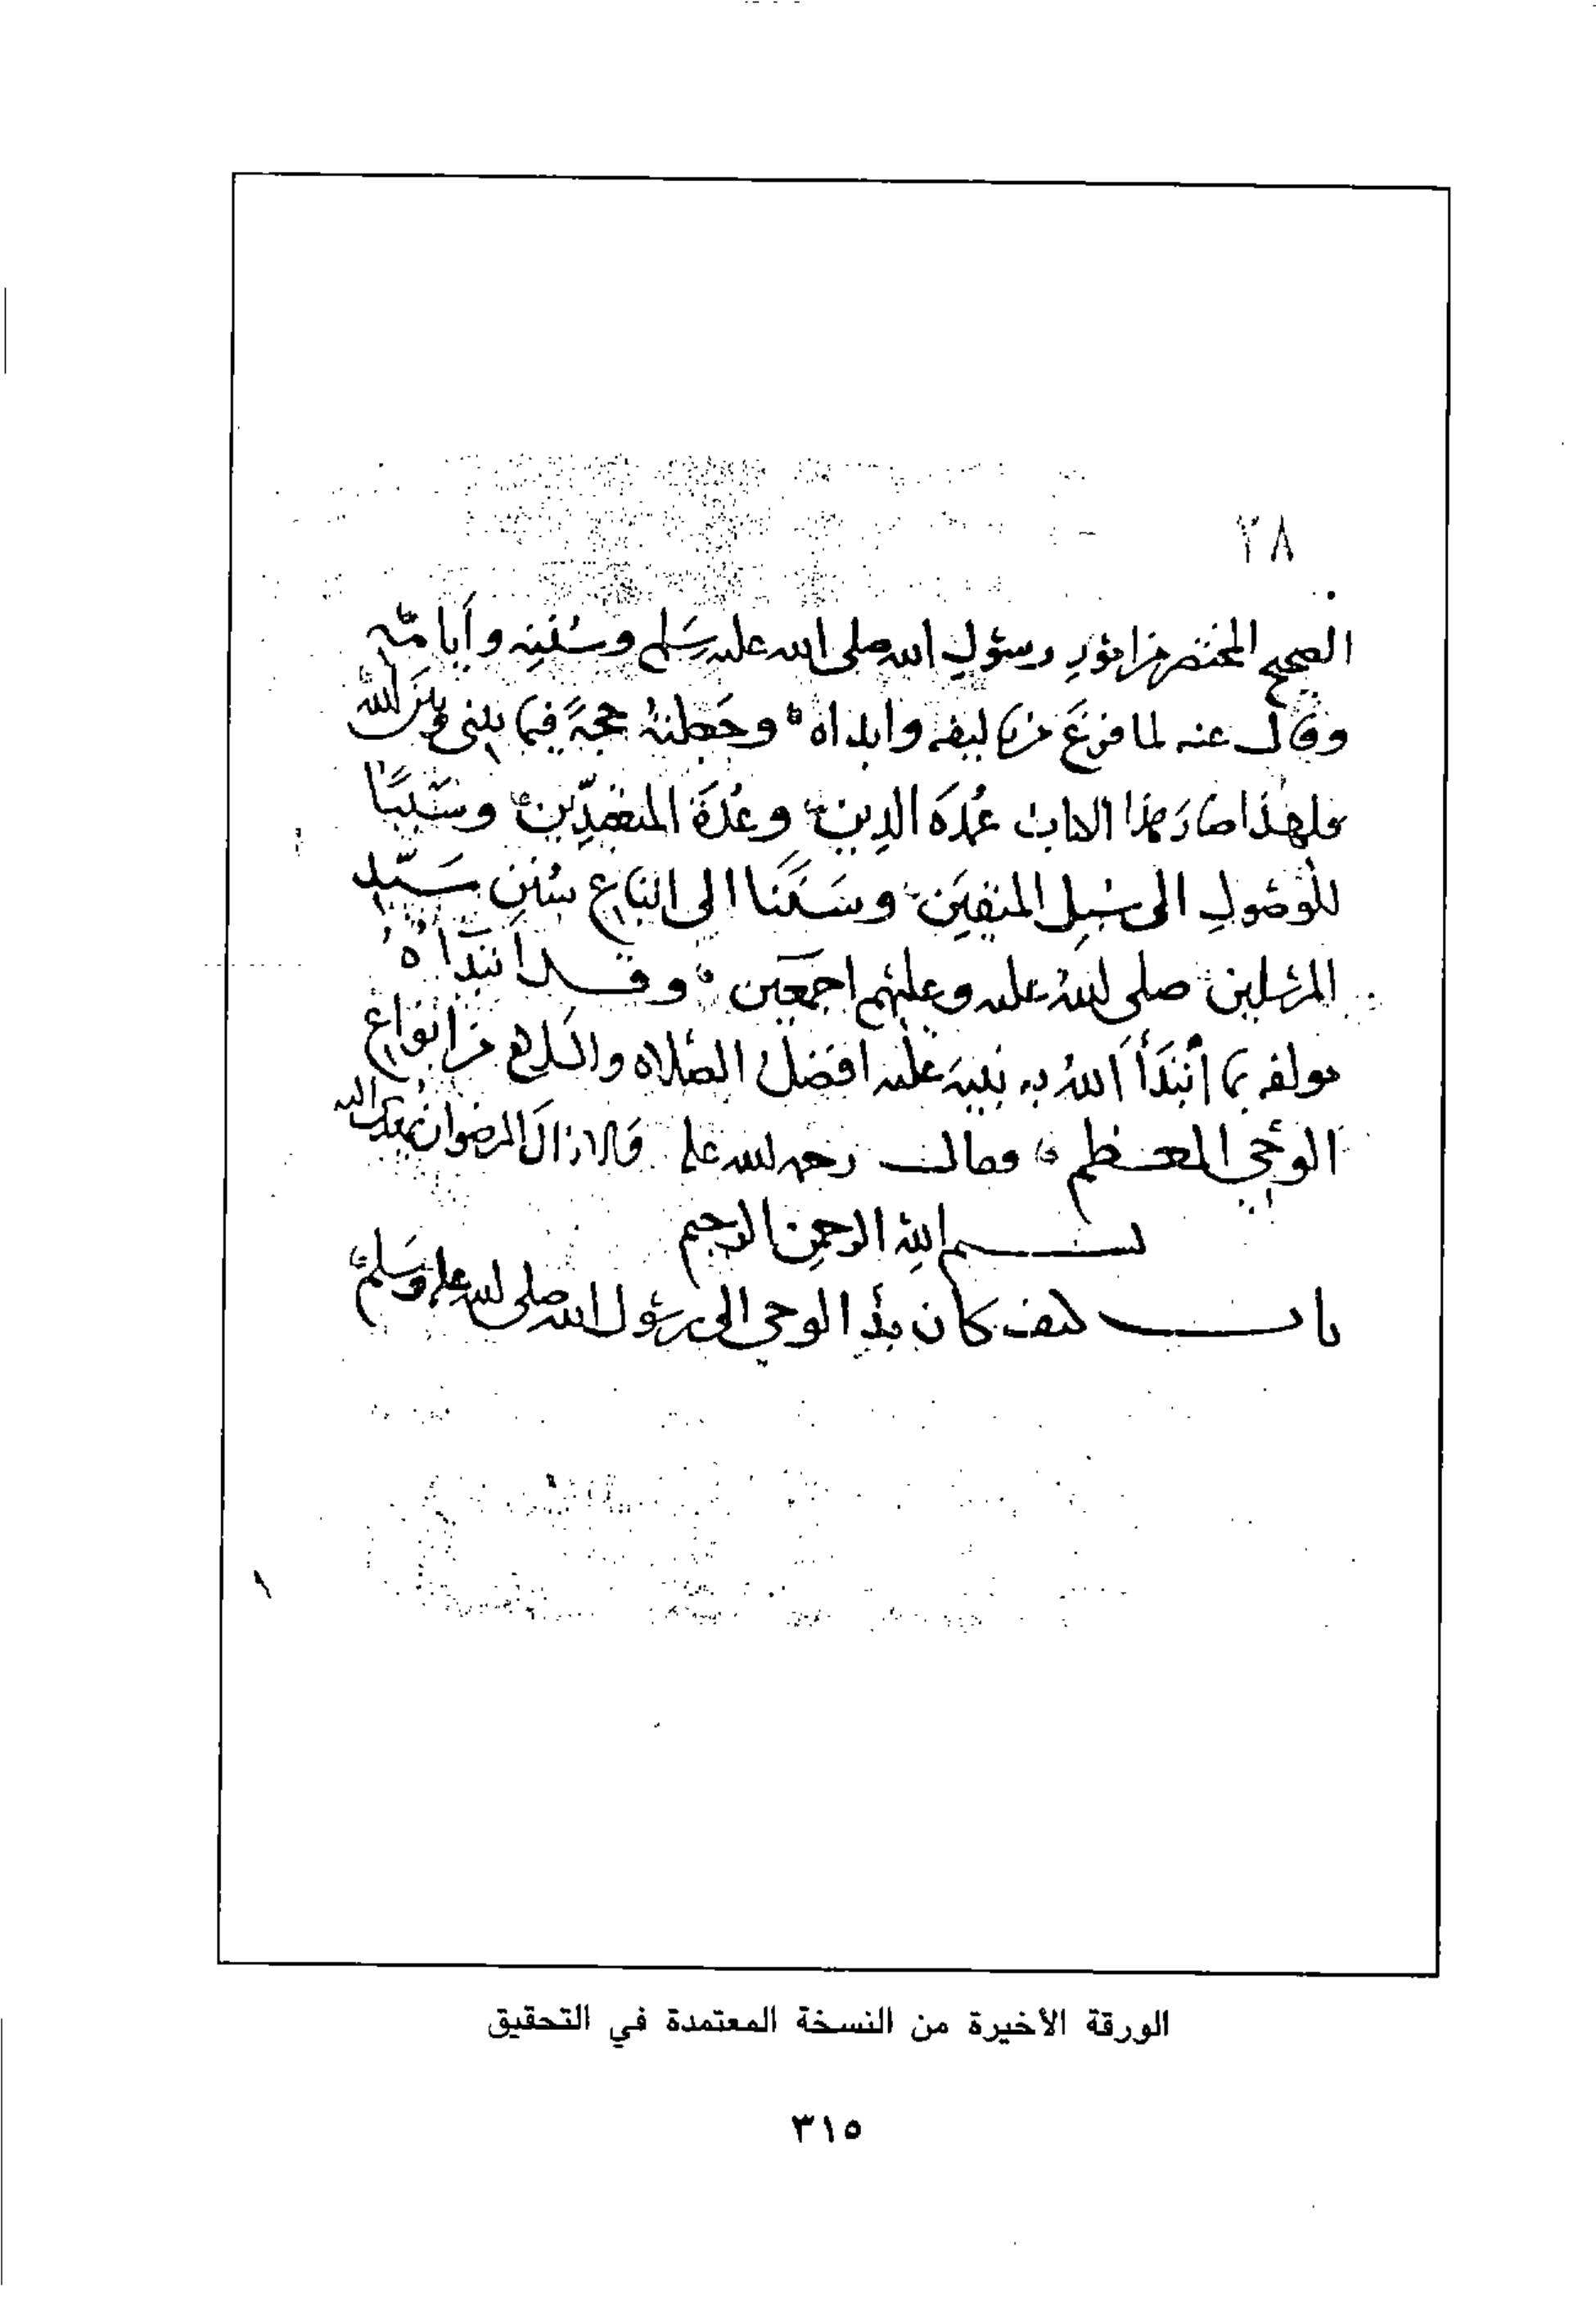 ٢٨
الصحيح المختصر من امور رسول الله صلى الله عليه وسلم وسننه وأيامه
وقال عنه لما فرغ من تاليفه وابداه وجعلته حجةً فيما بيني وبين الله
فلهذا صار هذا الكتاب عُمدَة الدين وعُدَة المتعبدين وسَبَبًا
للوصُولِ الى سُبل المتقين وسَنَنًا الى اتباع سُنَنِ سَيّد
المرسلين صلى اللهُ عليه وعليهم اجمعَين وقد ابتدَأه
مولفه بما أبتَدَأ اللهُ به نبيه عليه افضلُ الصلاه والسلام من انواع
الوحي المعظم فقال رحمه الله عليه ولا زال الرضوان
بسم اللهِ الرحمنِ الرحيم
باب كيف كان بدأ الوحي الى رسُول الله صلى الله عليه وسَلم
الورقة الأخيرة من النسخة المعتمدة في التحقيق
٣١٥